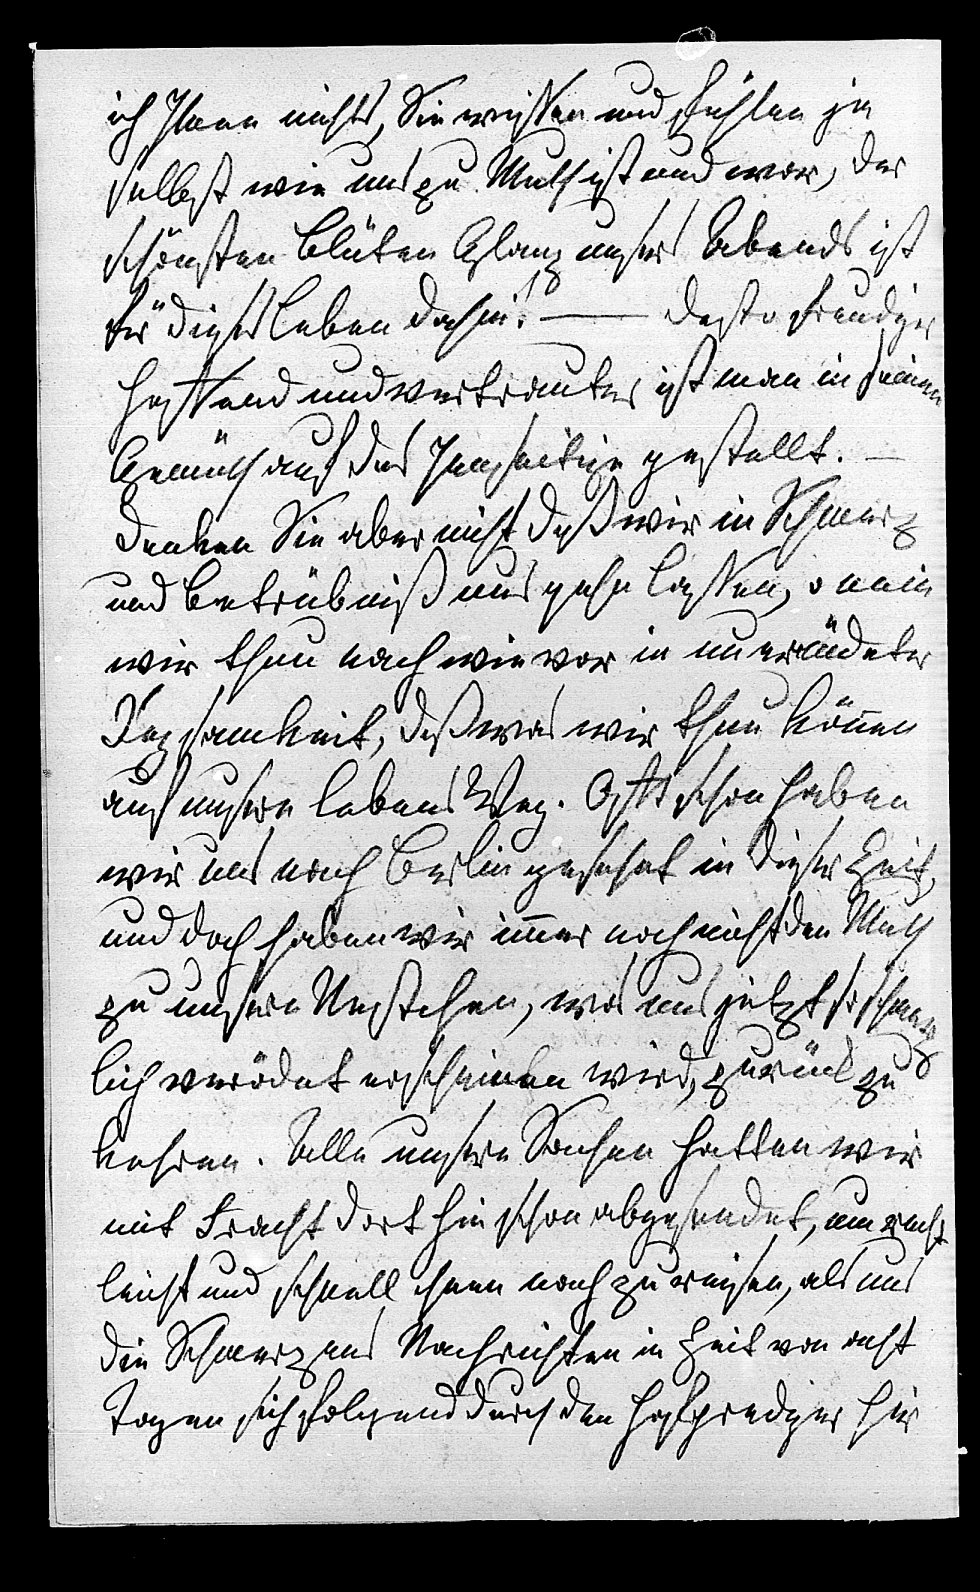 ich Ihnen nichts, Sie wissen und fühlen ja
selbst wie uns zu Muth ist und war, der
schönsten Blüten Glanz unsers Abends ist
für dieses Leben dahin! — desto freudiger
hoffend und vertrauter ist man in seinem
Gemüth auf das Jenseitige gestellt. —
Denken Sie aber nicht daß wir in Schmerz
und Betrübniß uns gehn lassen, o nein
wir thun nach wie vor in unermüdeter
daß was wir thun können
auf unserm Lebens Weg. Oft schon haben
wir uns nach Berlin gesehnt in dieser Zeit,
und doch haben wir immer noch nicht den Muth
zu unsern was uns jetzt so schmerz
lich verödet erscheinen wird, zurück zu
kehren. Alle unsere Sachen hatten wir
mit Fracht dort hin schon abgesendet, um recht
leicht und schnell ihnen nach zu reisen, als uns
die Schmerzens Nachrichten in Zeit von acht
Tagen sich folgend durch den Hofprediger hier